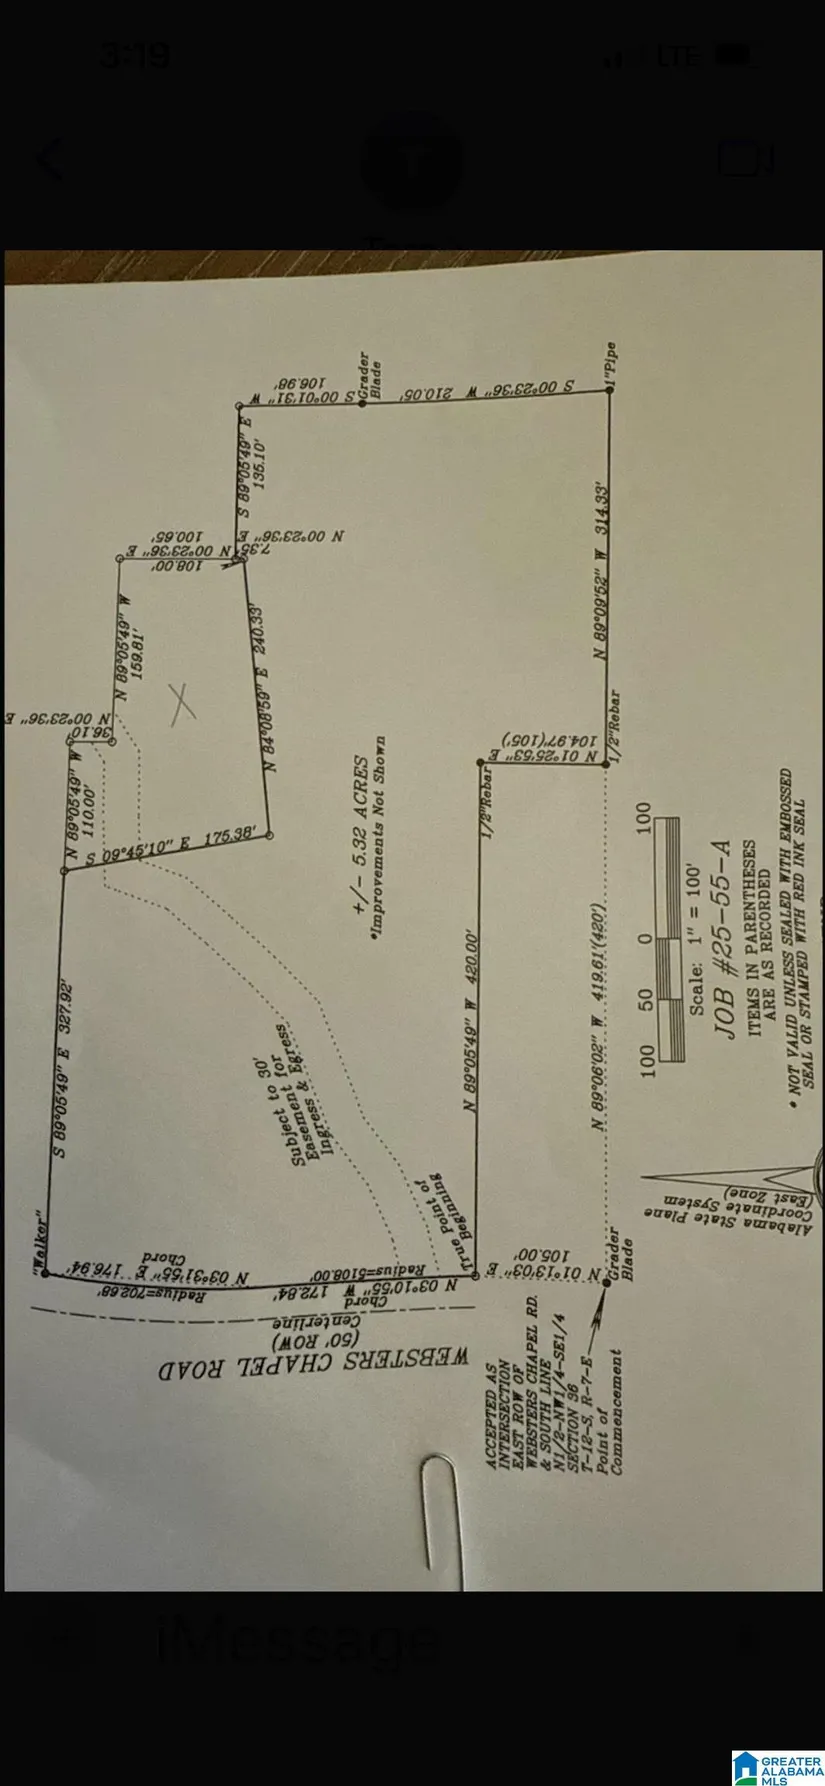 3:19
LTE
S 00°01'31" W
106.98'
Grader
Blade
S 00°23'36" W 210.05'
1"Pipe
S 89°05'49" E
135.10'
N 00°23'36" E
100.65'
N 00°23'36" E
7.35'
108.00'
N 89°05'49" W
159.81'
N 84°08'59" E 240.33'
N 89°09'52" W 314.33'
N 00°23'36" E
36.10'
N 89°05'49" W
110.00'
S 09°45'10" E 175.38'
N 01°25'53" E
104.97'(105')
1/2"Rebar
1/2"Rebar
+/- 5.32 ACRES
*Improvements Not Shown
S 89°05'49" E 327.92'
N 89°05'49" W 420.00'
N 89°06'02" W 419.61'(420')
Subject to 30'
Easement for
Ingress & Egress
True Point of
Beginning
"Walker"
N 03°31'55" E 176.94'
Chord
Radius=702.68'
N 03°10'55" W 172.84'
Chord
Radius=5108.00'
N 01°13'03" E
105.00'
Grader
Blade
Centerline
(50' ROW)
WEBSTERS CHAPEL ROAD
ACCEPTED AS
INTERSECTION
EAST ROW OF
WEBSTERS CHAPEL RD.
& SOUTH LINE
N1/2-NW1/4-SE1/4
SECTION 36
T-12-S, R-7-E
Point of
Commencement
100 50 0 100
Scale: 1" = 100'
JOB #25-55-A
ITEMS IN PARENTHESES
ARE AS RECORDED
* NOT VALID UNLESS SEALED WITH EMBOSSED
SEAL OR STAMPED WITH RED INK SEAL
Alabama State Plane
Coordinate System
(East Zone)
iMessage
GREATER
ALABAMA
MLS